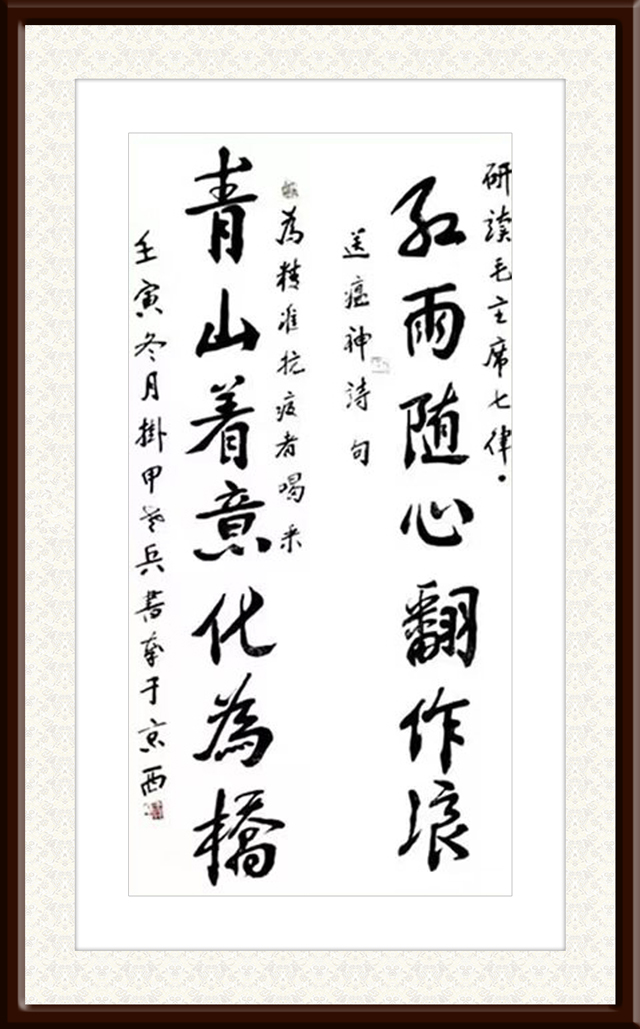 研读毛主席七律·
红雨随心翻作浪
送瘟神詩句
為精准抗疫者喝采
青山着意化為橋
壬寅冬月掛甲老兵書奉于京西